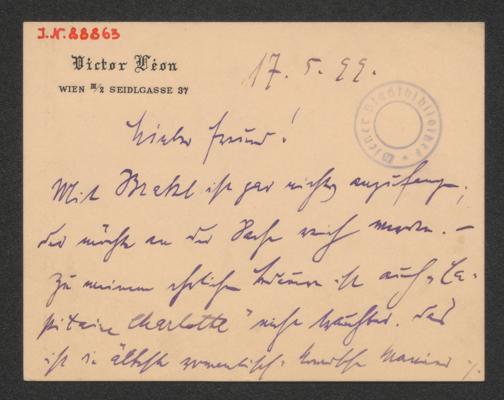 J.N. 88863
Victor Léon
WIEN III/2 SEIDLGASSE 37
17. 5. 99.
Wiener Stadtbibliothek
Lieber Freund!
Mit Brakl ist gar nichts anzufangen,
der möchte an der Sache reich werden. –
Zu meinem ehrlichen ist auch „Ca-
pitaine Charlotte“ nicht brauchbar. Das
ist in älteste romantisch- Manier